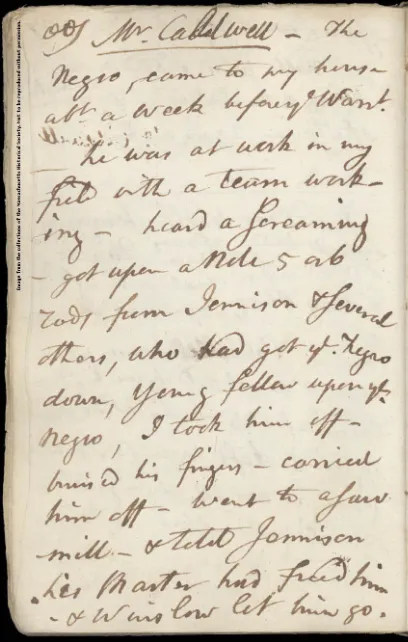 Mr. Caldwell – The
Negro, came to my house
abt a week before ye Warrt.
he was at work in my
field with a team work-
ing – heard a screaming
– got upon a Nole 5 or 6
rods from Jennison & several
others, who had got ye Negro
down, young fellow upon ye
Negro, I took him off –
bruised his fingers – carried
him off – went to a saw
mill – & told Jennison
his Master had freed him
– & Winslow let him go.
Image from the collections of the Massachusetts Historical Society. Not to be reproduced without permission.